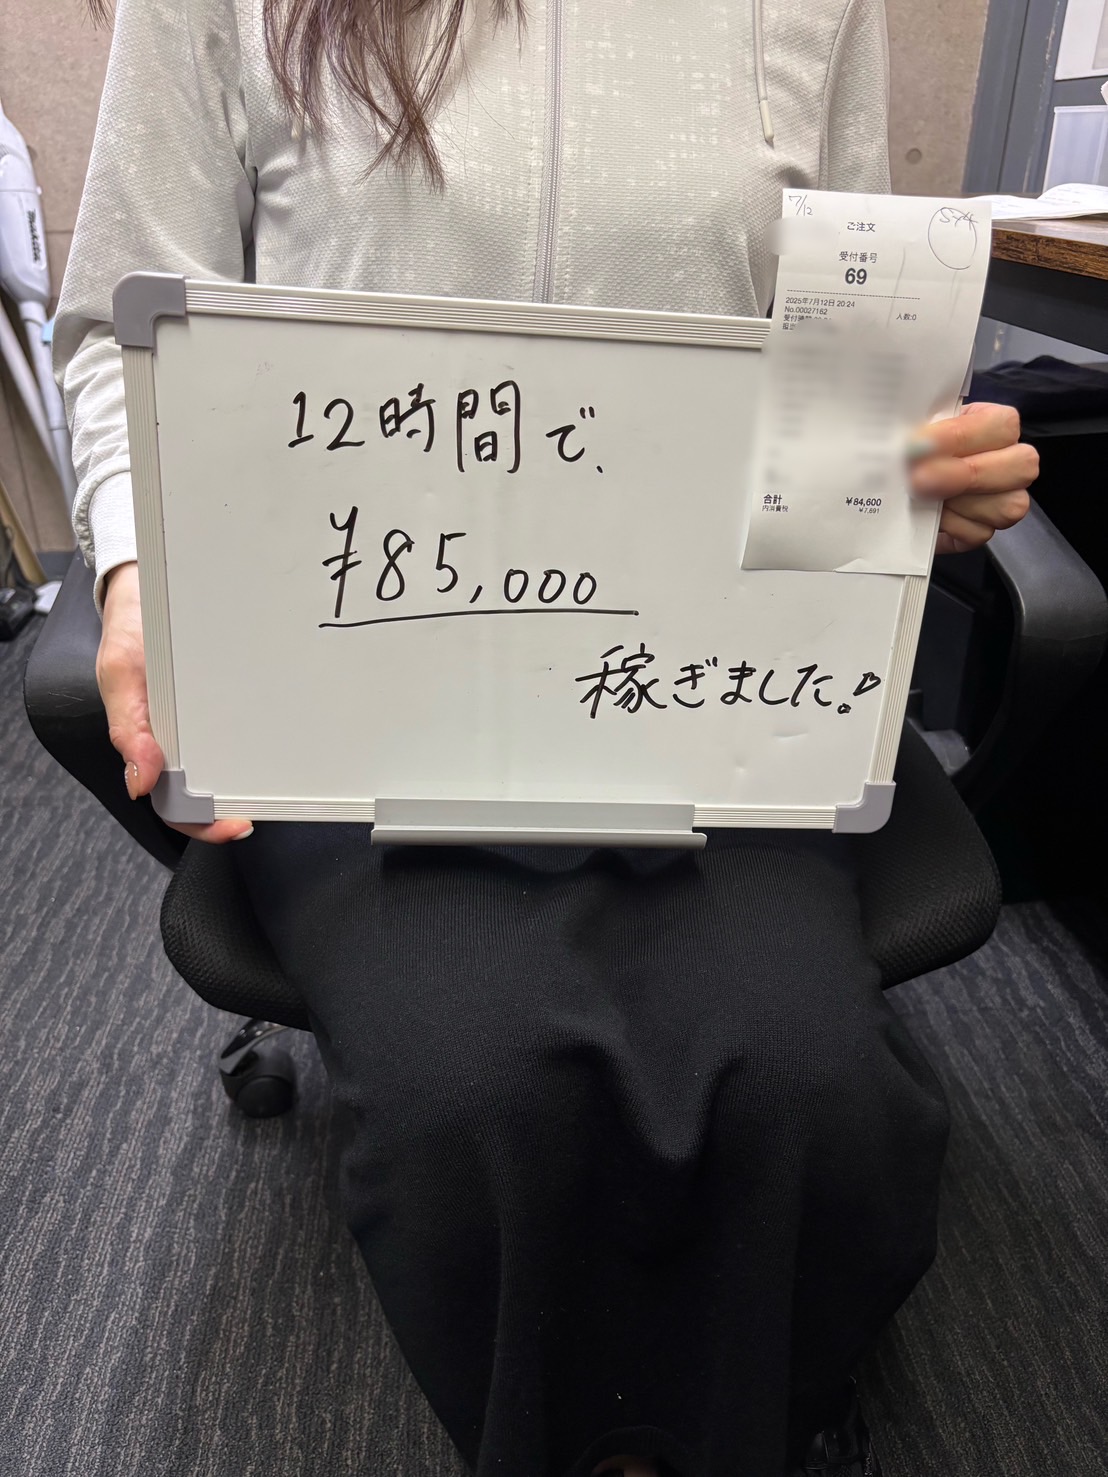 12時間で、
¥85,000
稼ぎました!
7/12
ご注文
受付番号
69
2025年7月12日 20:24
No.00027162
人数:0
合計 ¥84,600
内消費税 ¥7,691
makita